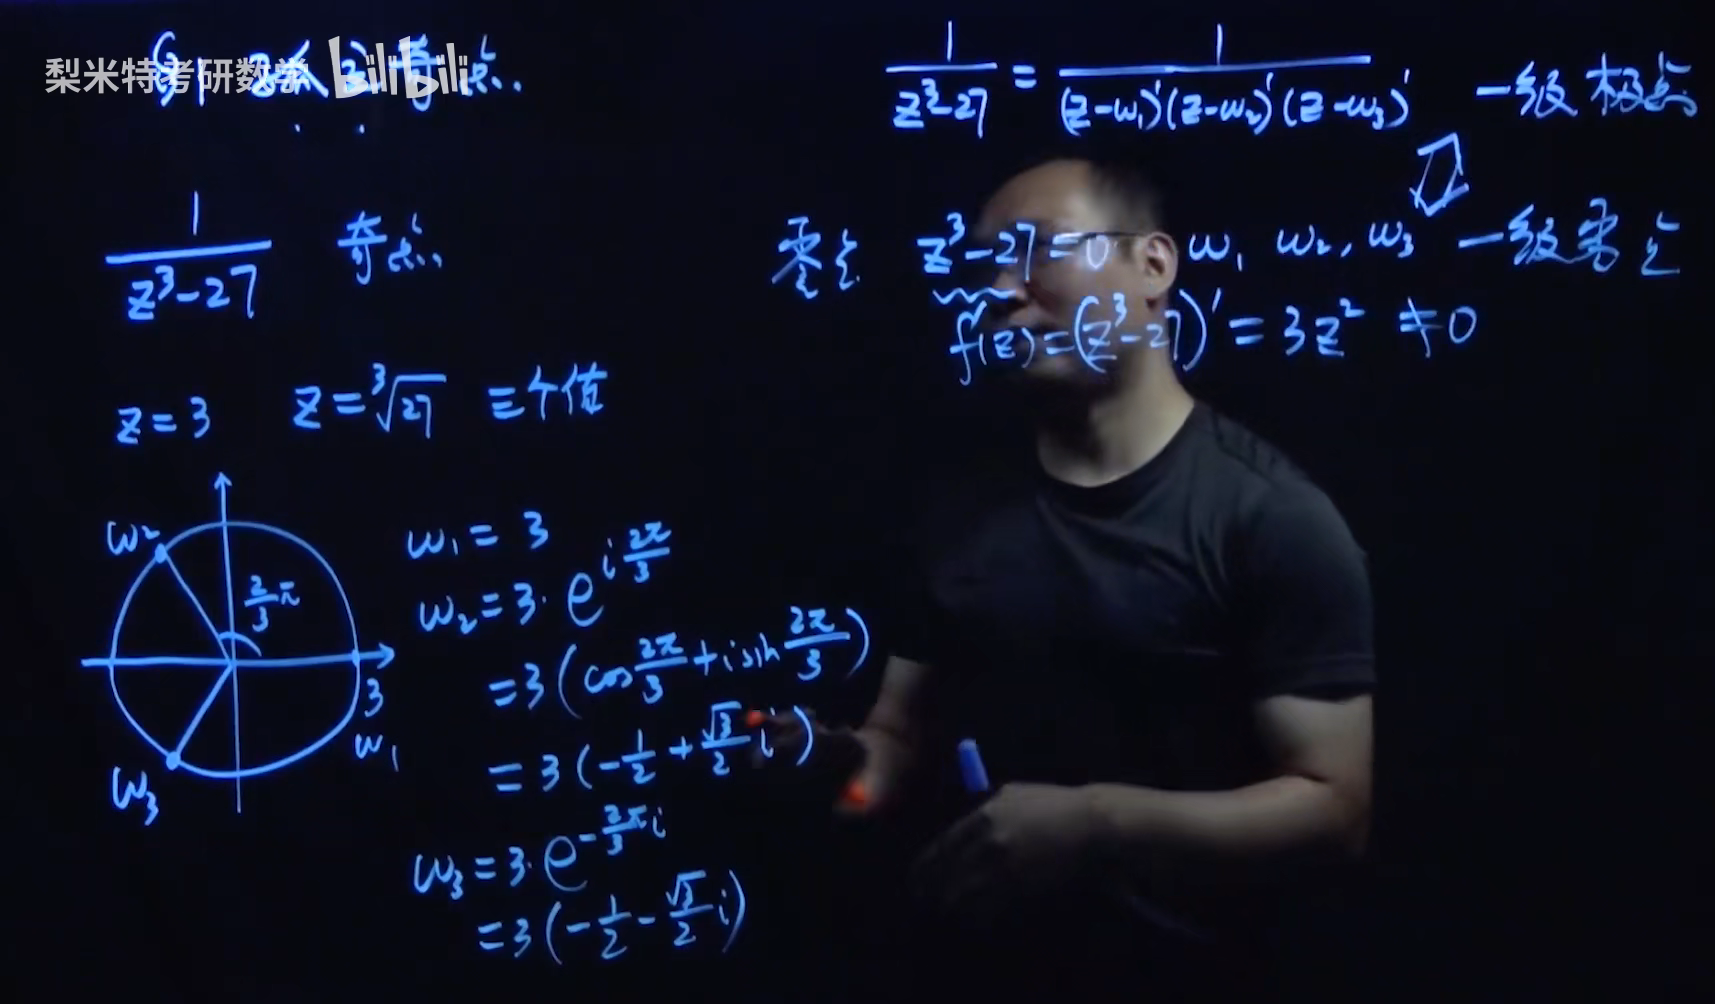 梨米特考研数学 bilibili
§1 孤立奇点.
1/(z³-27) 奇点.
z=3 z=³√27 三个值
w₂
2/3 π
3
w₁
w₃
w₁ = 3
w₂ = 3· e^(i 2π/3)
= 3(cos 2π/3 + i sin 2π/3)
= 3(-1/2 + √3/2 i)
w₃ = 3· e^(-2/3 πi)
= 3(-1/2 - √3/2 i)
1/(z³-27) = 1/((z-w₁)¹(z-w₂)¹(z-w₃)¹) 一级极点
零点 z³-27=0 w₁ w₂, w₃ 一级零点
f'(z)=(z³-27)' = 3z² ≠0